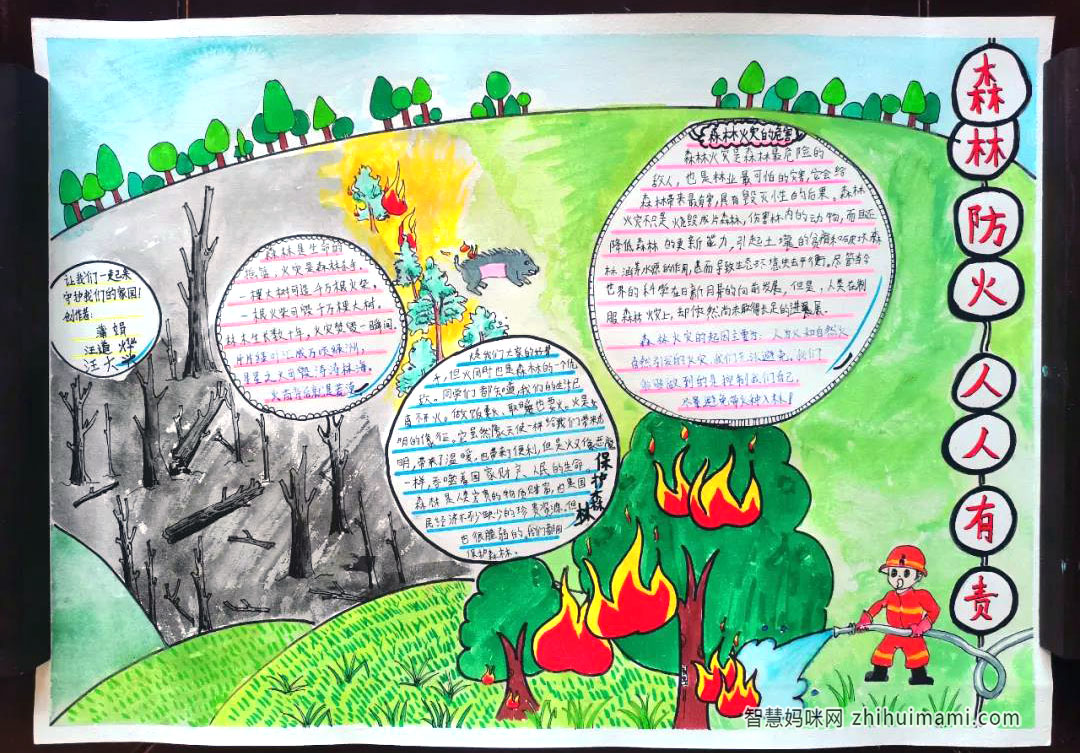 森林防火人人有责
森林火灾的危害
森林火灾是森林最危险的
敌人，也是林业最可怕的灾害，它会给
森林带来最有害，具有毁灭性的后果。森林
火灾不只是烧毁成片森林，伤害林内的动物，而且还
降低森林的更新能力，引起土壤的贫瘠和破坏森
林涵养水源的作用，甚而导致生态环境失去平衡。尽管当今
世界的科学在日新月异的向前发展，但是，人类在制
服森林火灾上，却依然尚未取得长足的进展。
森林火灾的起因主要是：人为火和自然火
自然引发的火灾，我们无法避免，我们
能做到的是控制我们自己，
尽量避免带火种入林！
让我们一起来
守护我们的家园！
创作者：
蒲娟
汪道
汪大
森林是生命的
摇篮，火灾是森林杀手。
一棵大树可造千万根火柴，
一根火柴可毁千万棵大树。
林木生长数十年，火灾焚毁一瞬间。
片片绿叶汇成万顷绿洲，
星星之火可毁涛涛林海。
火苗背后就是苦海
是我们大家的好帮
手，但火同时也是森林的一个仇
敌。同学们都知道，我们的生活已
离不开火。做饭要火、取暖也要火。火是光
明的象征。它虽然像天使一样给我们带来光
明，带来了温暖，也带来了便利，但是火又像恶魔
一样，吞噬着国家财产、人民的生命。
森林是人类宝贵的物质财富，也是国
民经济不可缺少的珍贵资源。但
也很脆弱的，我们要用
保护森林。
保护森林
智慧妈咪网 zhihuimami.com